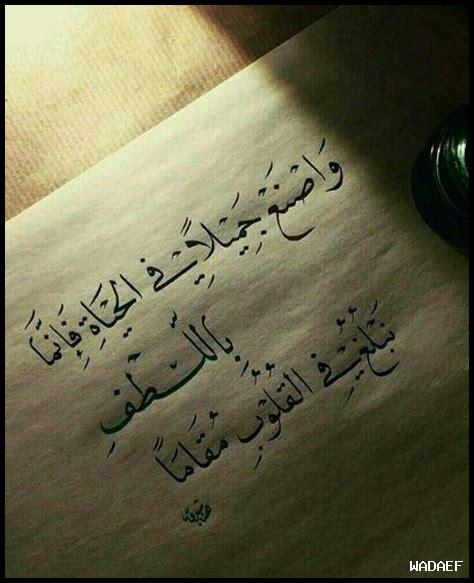 وَاصْنَعْ جَمِيلاً في الحَيَاةِ فَإِنَّمَا
بِاللُّطْفِ
نَبْلُغُ في القُلُوْبِ مُقَامَا
WADAEF